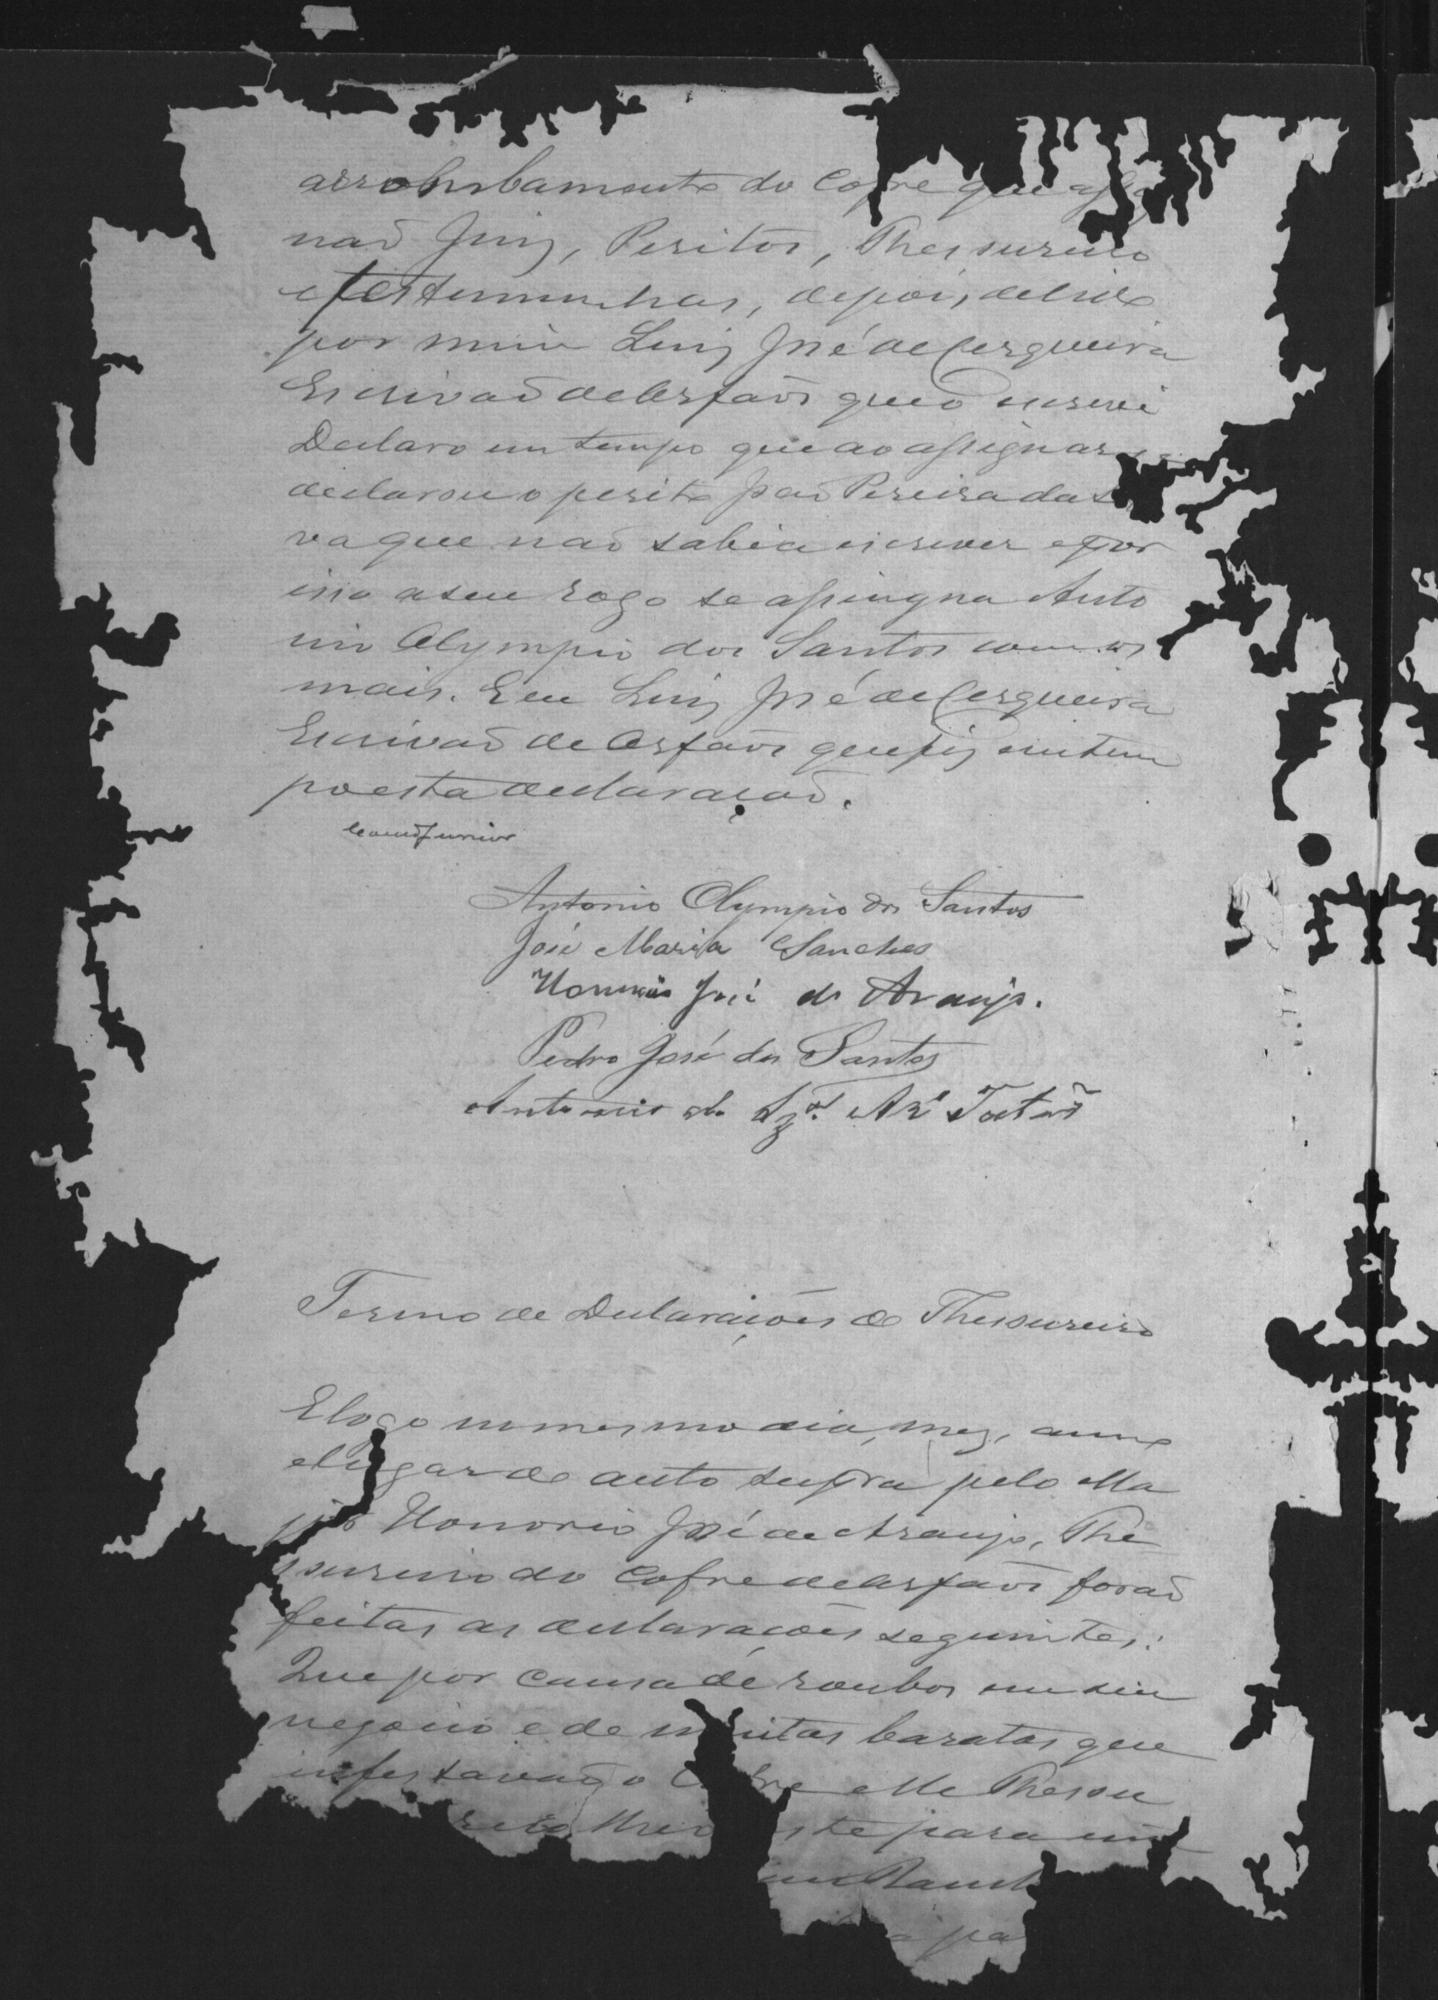 arrombamento do Cofre que assig
não Juiz, Peritos, Thesoureiro
e testemunhas, depois de lido
por mim Luiz José de Cerqueira
Escrivaõ de Orfaõs que o escrevi
Declaro em tempo que ao assignar
declarou o perito Joaõ Pereira da S
va que naõ sabia escrever e por
isso a seu rogo se assingna Anto
nio Olympio dos Santos com os
mais. Eeu Luiz José de Cerqueira
Escrivaõ de Orfaõs que fiz em tem
po esta declaraçaõ.
Junior
Antonio Olympio dos Santos
José Maria Sanches
Honorio José de Araujo.
Pedro José dos Santos
Antonio de
Termo de Declarações do Thesoureiro
E logo no mesmo dia, mez, anno
e lugar do auto supra pelo Ma
jor Honorio José de Araujo, The
soureiro do Cofre de Orfaõs foraõ
feitas as declarações seguintes:
Que por causa de roubos em seu
negocio e de muitas baratas que
infestavaõ o Cofre elle Thesou
te para um
a pa